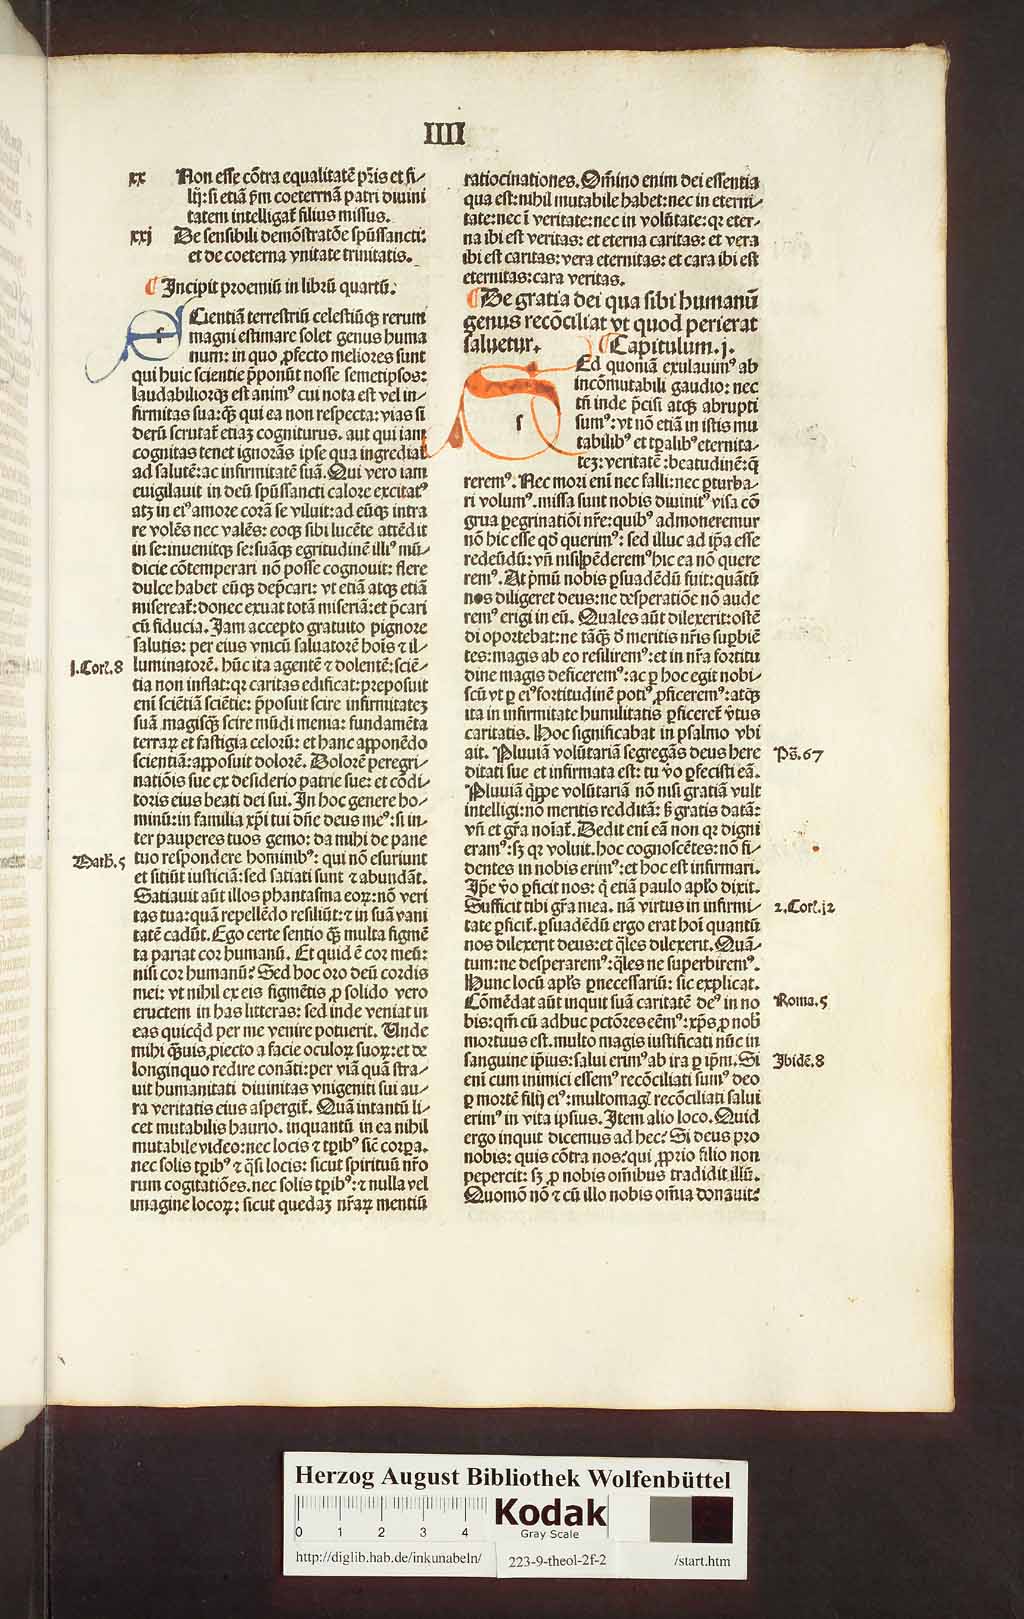 IIII
xx Non esse cõtra equalitatẽ pr̃is et fi⸗
lij: si etiã p̃m coeternã patri diuini
tatem intelligat̃ filius missus.
xxj De sensibili demõstratõe spũssancti:
et de coeterna vnitate trinitatis.
¶ Incipit proemiũ in librũ quartũ.
SCientiã terrestriũ celestiũq rerum
magni estimare solet genus huma
num: in quo ꝓfecto meliores sunt
qui huic scientie p̃ponũt nosse semetipsos:
laudabiliorq est animꝰ cui nota est vel in⸗
firmitas sua: q̃ꝫ qui ea non respecta: vias si
derũ scrutat̃ etiaꝫ cogniturus. aut qui iam
cognitas tenet ignorãs ipse qua ingrediat̃
ad salutẽ: ac infirmitatẽ suã. Qui vero iam
euigilauit in deũ spũssancti calore excitatꝰ
atꝫ in eiꝰ amore corã se viluit: ad eũq intra
re volẽs nec valẽs: eoq sibi lucẽte attẽdit
in se: inuenitq se: suãq egritudinẽ illiꝰ mũ⸗
dicie cõtemperari nõ posse cognouit: flere
dulce habet eũq dep̃cari: vt etiã atq etiã
misereat̃: donec exuat totã miseriã: et p̃cari
cũ fiducia. Iam accepto gratuito pignore
salutis: per eius vnicũ saluatorẽ hoĩs ⁊ il⸗
I. Cor̃. 8 luminatorẽ. hũc ita agentẽ ⁊ dolentẽ: sciẽ⸗
tia non inflat: qꝛ caritas edificat: preposuit
eni sciẽtiã sciẽtie: p̃posuit scire infirmitateꝫ
suã magisq̃ꝫ scire mũdi menia: fundamẽta
terraꝝ et fastigia celorũ: et hanc apponẽdo
scientiã: apposuit dolorẽ. Dolorẽ peregri⸗
natiõis sue ex desiderio patrie sue: et cõdi⸗
toris eius beati dei sui. In hoc genere ho⸗
minũ: in familia xp̃i tui dñe deus meꝰ: si in⸗
ter pauperes tuos gemo: da mihi de pane
Math̃. 5 tuo respondere hominibꝰ: qui nõ esuriunt
et sitiũt iusticiã: sed satiati sunt ⁊ abundãt.
Satiauit aũt illos phantasma eoꝝ: nõ veri
tas tua: quã repellẽdo resiliũt: ⁊ in suã vani
tatẽ cadũt. Ego certe sentio q̃ꝫ multa figmẽ
ta pariat cor humanũ. Et quid ẽ cor meũ:
nisi cor humanũ? Sed hoc oro deũ cordis
mei: vt nihil ex eis figmẽtis ꝓ solido vero
eructem in has litteras: sed inde veniat in
eas quicq̃d per me venire potuerit. Unde
mihi q̃ꝫuis ꝓiecto a facie oculoꝝ suoꝝ: et de
longinquo redire conãti: per viã quã stra⸗
uit humanitati diuinitas vnigeniti sui au⸗
ra veritatis eius aspergit̃. Quã intantũ li⸗
cet mutabilis haurio. inquantũ in ea nihil
mutabile video: nec locis ⁊ tꝑibꝰ sic̃ corꝑa.
nec solis tꝑibꝰ ⁊ q̃si locis: sicut spirituũ nr̃o
rum cogitatiões. nec solis tꝑibꝰ: ⁊ nulla vel
imagine locoꝝ: sicut quedaꝫ nr̃aꝝ mentiũ
ratiocinationes. Om̃ino enim dei essentia
qua est: nihil mutabile habet: nec in eterni⸗
tate: nec ĩ veritate: nec in volũtate: qꝛ eter⸗
na ibi est veritas: et eterna caritas: et vera
ibi est caritas: vera eternitas: et cara ibi est
eternitas: cara veritas.
¶ De gratia dei qua sibi humanũ
genus recõciliat vt quod perierat
saluetur. ¶ Capitulum. j.
SEd quoniã exulauimꝰ ab
incõmutabili gaudio: nec
tñ inde p̃cisi atq abrupti
sumꝰ: vt nõ etiã in istis mu
tabilibꝰ et tꝑalibꝰ eternita⸗
teꝫ: veritatẽ: beatudinẽ: q̃
reremꝰ. Nec mori eni nec falli: nec ꝑturba⸗
ri volumꝰ. missa sunt nobis diuinitꝰ visa cõ
grua ꝑegrinatiõi nr̃e: quibꝰ admoneremur
nõ hic esse qd̃ querimꝰ: sed illuc ad ip̃a esse
redeũdũ: vñ nisi pẽderemꝰ hic ea nõ quere
remꝰ. At p̃mũ nobis ꝑsuadẽdũ fuit: quãtũ
nos diligeret deus: ne desperatiõe nõ aude
remꝰ erigi in eũ. Quales aũt dilexerit: ostẽ
di oportebat: ne tãq̃ꝫ d̃ meritis nr̃is suꝑbiẽ
tes: magis ab eo resiliremꝰ: et in nr̃a fortitu
dine magis deficeremꝰ: ac ꝑ hoc egit nobi⸗
scũ vt ꝑ eiꝰ fortitudinẽ potiꝰ ꝓficeremꝰ: atq
ita in infirmitate humilitatis ꝑficeret̃ v̾tus
caritatis. Hoc significabat in psalmo vbi
ait. Pluuiã volũtariã segregãs deus here Ps̃. 67
ditati sue et infirmata est: tu v̾o ꝑfecisti eã.
Pluuiã q̃ppe volũtariã nõ nisi gratiã vult
intelligi: nõ meritis redditã: s̃ gratis datã:
vñ et gr̃a noĩat̃. Dedit eni eã non qꝛ digni
eramꝰ: sꝫ qꝛ voluit. hoc cognoscẽtes: nõ fi⸗
dentes in nobis erimꝰ: et hoc est infirmari.
Ip̃e v̾o ꝑficit nos: q̃ etiã paulo ap̃lo dixit.
Sufficit tibi gr̃a mea. nã virtus in infirmi⸗ 2. Cor̃. 12
tate ꝑficit̃. ꝑsuadẽdũ ergo erat hoĩ quantũ
nos dilexerit deus: et q̃les dilexerit. Quã⸗
tum: ne desperaremꝰ: q̃les ne superbiremꝰ.
Hunc locũ ap̃ls ꝑnecessariũ: sic explicat.
Cõmẽdat aũt inquit suã caritatẽ deꝰ in no Roma. 5
bis: qm̃ cũ adhuc pctõres eẽmꝰ: xp̃s ꝓ nob̃
mortuus est. multo magis iustificati nũc in
sanguine ip̃ius: salui erimꝰ ab ira ꝑ ip̃m. Si Ibidẽ. 8
eni cum inimici essemꝰ recõciliati sumꝰ deo
ꝑ mortẽ filij eiꝰ: multomag̃ recõciliati salui
erimꝰ in vita ipsius. Item alio loco. Quid
ergo inquit dicemus ad hec? Si deus pro
nobis: quis cõtra nos? qui ꝓprio filio non
pepercit: sꝫ ꝓ nobis om̃ibus tradidit illũ.
Quomõ nõ ⁊ cũ illo nobis om̃ia donauit?
Herzog August Bibliothek Wolfenbüttel
0 1 2 3 4
Kodak
Gray Scale
http://diglib.hab.de/inkunabeln/ 223-9-theol-2f-2 /start.htm